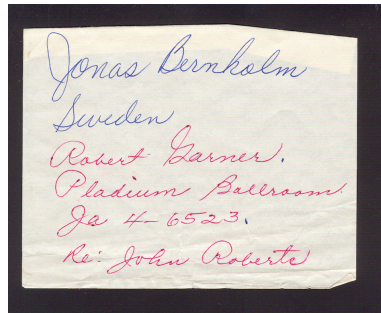 Jonas Bernholm
Sweden
Robert Garner.
Pladium Ballroom.
Ja 4-6523.
Re: John Roberts